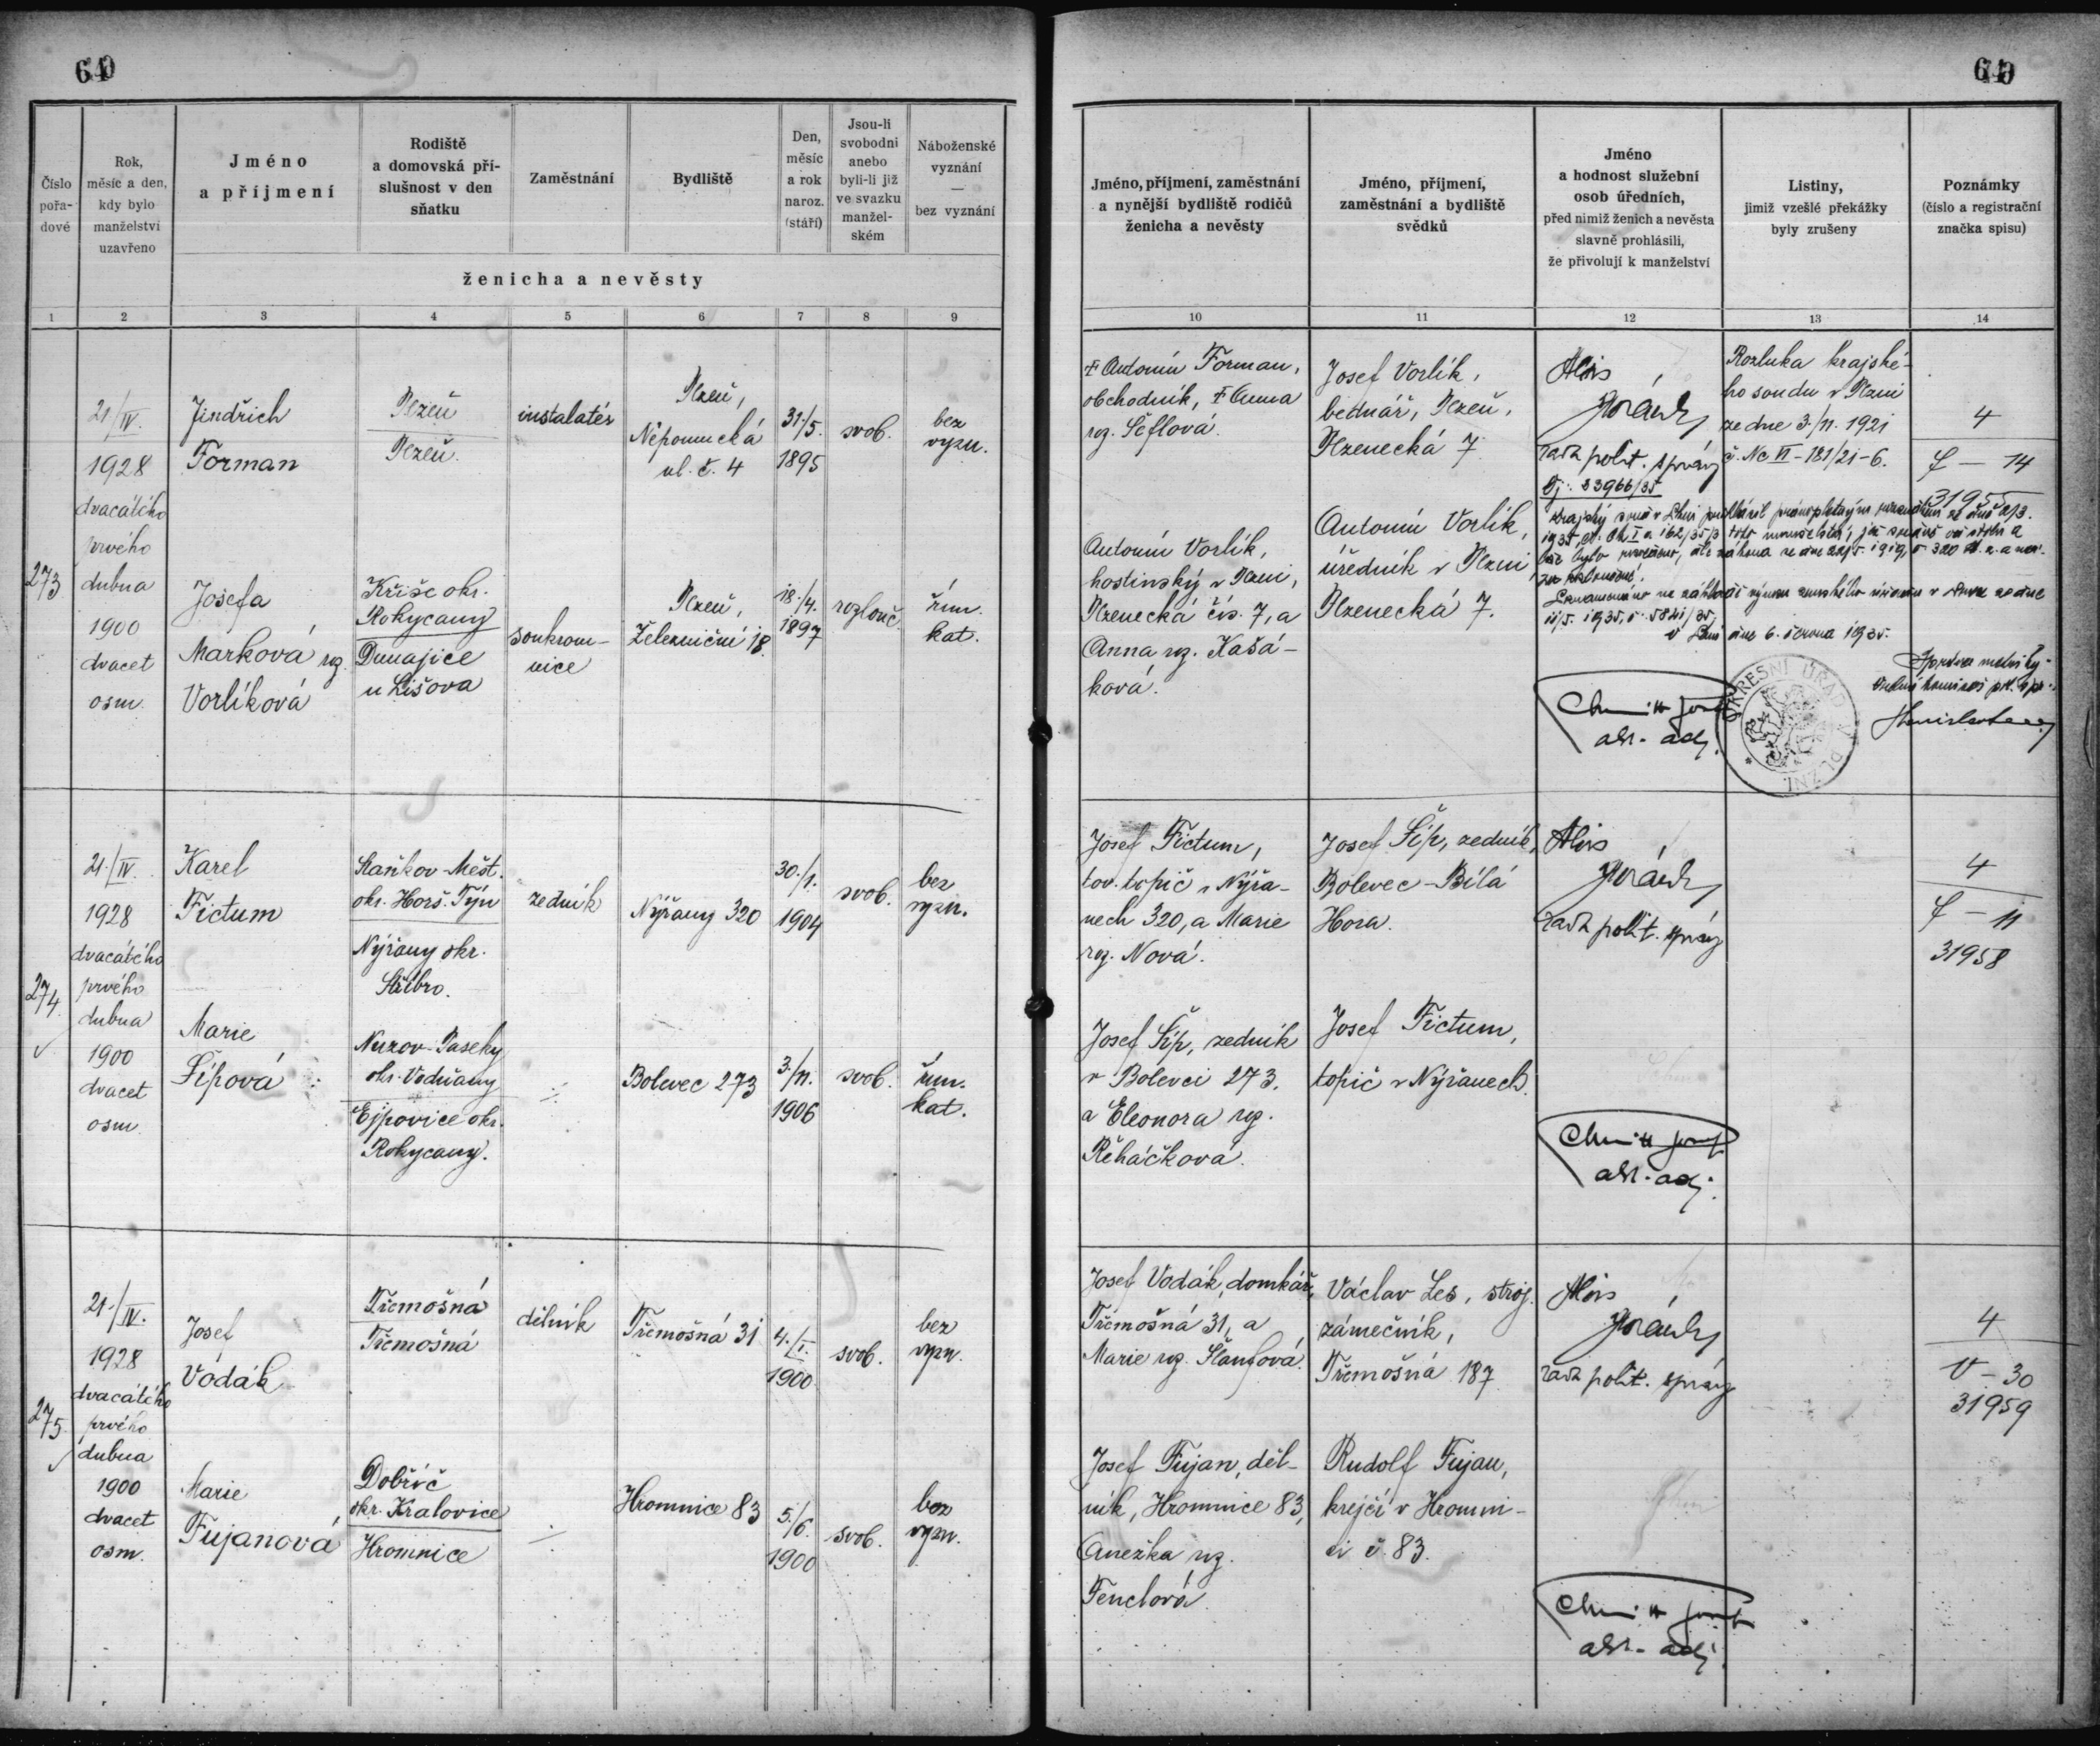 64
Číslo pořa-dové
Rok, měsíc a den, kdy bylo manželství uzavřeno
Jméno a příjmení
Rodiště a domovská pří-slušnost v den sňatku
Zaměstnání
Bydliště
Den, měsíc a rok naroz. (stáří)
Jsou-li svobodni anebo byli-li již ve svazku manžel-ském
Náboženské vyznání — bez vyznání
ženicha a nevěsty
Jméno, příjmení, zaměstnání a nynější bydliště rodičů ženicha a nevěsty
Jméno, příjmení, zaměstnání a bydliště svědků
Jméno a hodnost služební osob úředních, před nimiž ženich a nevěsta slavně prohlásili, že přivolují k manželství
Listiny, jimiž vzešlé překážky byly zrušeny
Poznámky (číslo a registrační značka spisu)
1 2 3 4 5 6 7 8 9 10 11 12 13 14
273
21./IV.
1928
dvacátého
prvého
dubna
1900
dvacet
osm.
Jindřich
Forman
Plzeň
Plzeň.
instalatér
Plzeň,
Nepomucká
ul. č. 4
31./5.
1895
svob.
bez
vyzn.
Josefa
Marková roz.
Vorlíková
Kříše okr.
Rokycany
Dunajice
u Lišova
soukrom-
nice
Plzeň,
Železniční 18.
18./4.
1897
rozlouč.
řím.
kat.
† Antonín Forman,
obchodník, † Anna
roz. Šeflová.
Antonín Vorlík,
hostinský v Plzni,
Plzenecká čís. 7, a
Anna roz. Kašá-
ková.
Josef Vorlík,
bednář, Plzeň,
Plzenecká 7.
Antonín Vorlík,
úředník v Plzni,
Plzenecká 7.
Alois
rada polit. správy
Čj: 33966/35
Rozluka krajské-
ho soudu v Plzni
ze dne 3./11. 1921
č. Nc VI - 181/21-6.
4
f — 14
31955
v Plzni dne 6. června 1935.
adj.
OKRESNÍ ÚŘAD V PLZNI
274
21./IV.
1928
dvacátého
prvého
dubna
1900
dvacet
osm
Karel
Fictum
Staňkov-Měst.
okr. Horš. Týn
Nýřany okr.
Stříbro.
zedník
Nýřany 320
30./1.
1904
svob.
bez
vyzn.
Marie
Šípová
Nuzov-Paseky
okr. Vodňany
Ejpovice okr.
Rokycany.
Bolevec 273
3./11.
1906
svob.
řím.
kat.
Josef Fictum,
tov. topič v Nýřa-
nech 320, a Marie
roz. Nová.
Josef Šíp, zedník
v Bolevci 273,
a Eleonora roz.
Řeháčková.
Josef Šíp, zedník,
Bolevec - Bílá
Hora.
Josef Fictum,
topič v Nýřanech.
Alois
rada polit. správy
4
f — 11
31958
adj.
275
21./IV.
1928
dvacátého
prvého
dubna
1900
dvacet
osm.
Josef
Vodák
Třemošná
Třemošná
dělník
Třemošná 31
4./I.
1900
svob.
bez
vyzn.
Marie
Fujanová
Dobříč
okr. Kralovice
Hromnice
Hromnice 83
5./6.
1900
svob.
bez
vyzn.
Josef Vodák, domkář,
Třemošná 31, a
Marie roz. Šlaufová.
Josef Fujan, děl-
ník, Hromnice 83,
Anežka roz.
Fenclová
Václav Les, stroj.
zámečník,
Třemošná 187
Rudolf Fujan,
krejčí v Hromni-
ci č. 83.
Alois
rada polit. správy
4
V — 30
31959
adj.